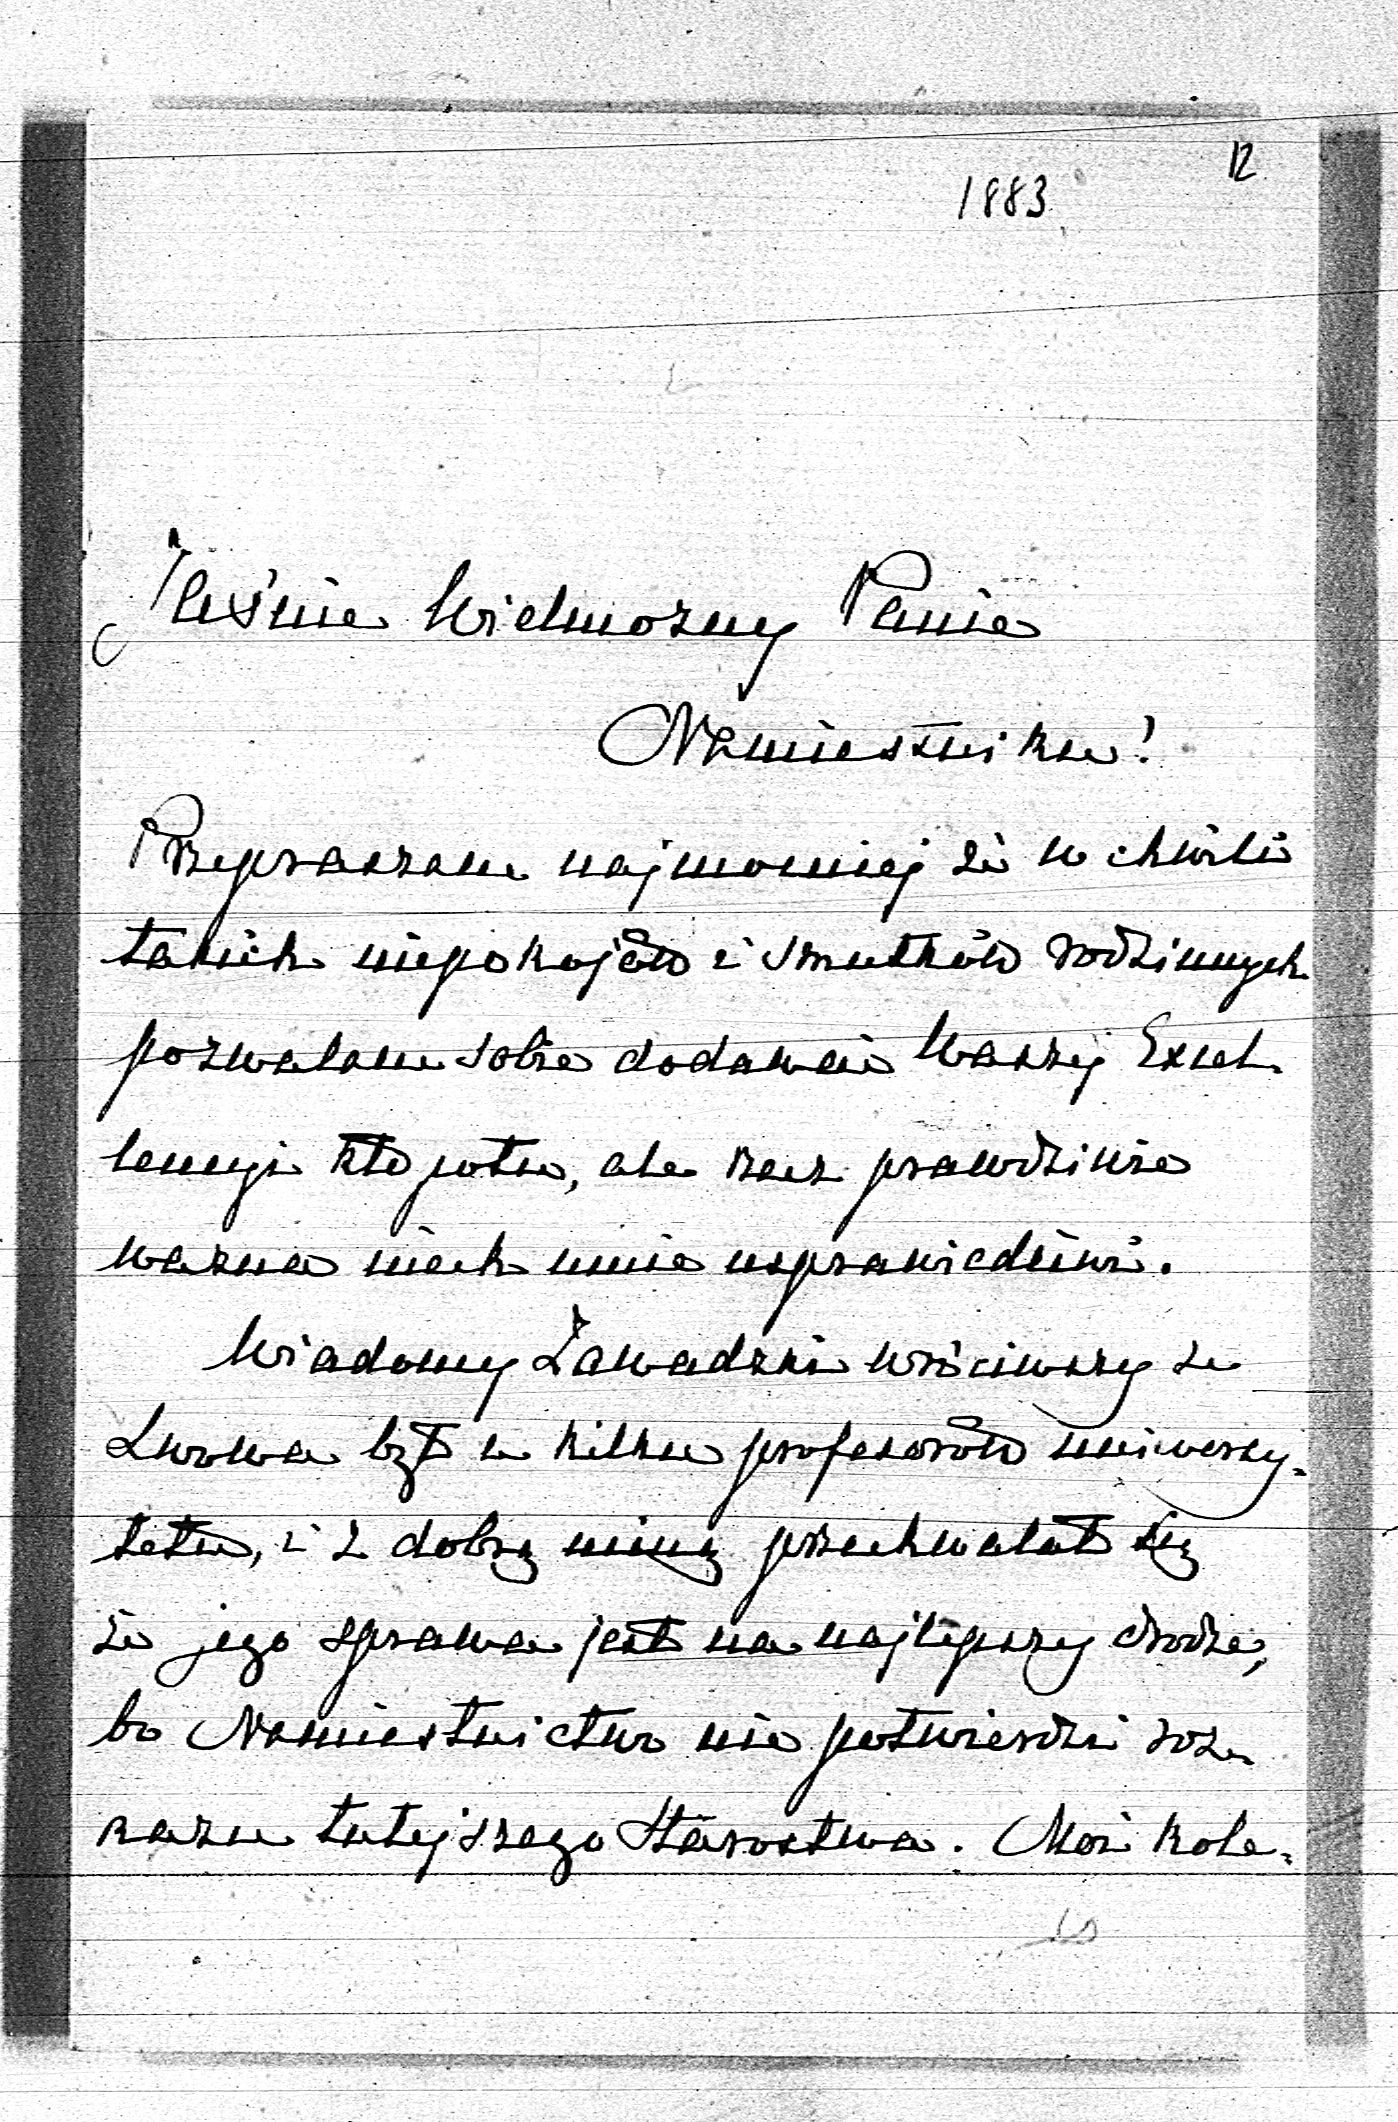 12
1883
Jaśnie Wielmożny Panie
Namiestniku!
Przepraszam najmocniej że w chwili
takich niepokojów i smutków rodzinnych
pozwalam sobie dodawać Waszej Excel-
lencyi kłopotu, ale rzecz prawdziwie
ważna niech mnie usprawiedliwi.
Wiadomy Zawadzki wróciwszy ze
Lwowa był u kilku profesorów uniwersy-
tetu, i z dobrą miną przechwalał się
że jego sprawa jest na najlepszej drodze,
bo Namiestnictwo nie potwierdzi roz-
kazu tutejszego Starostwa. Moi kole-